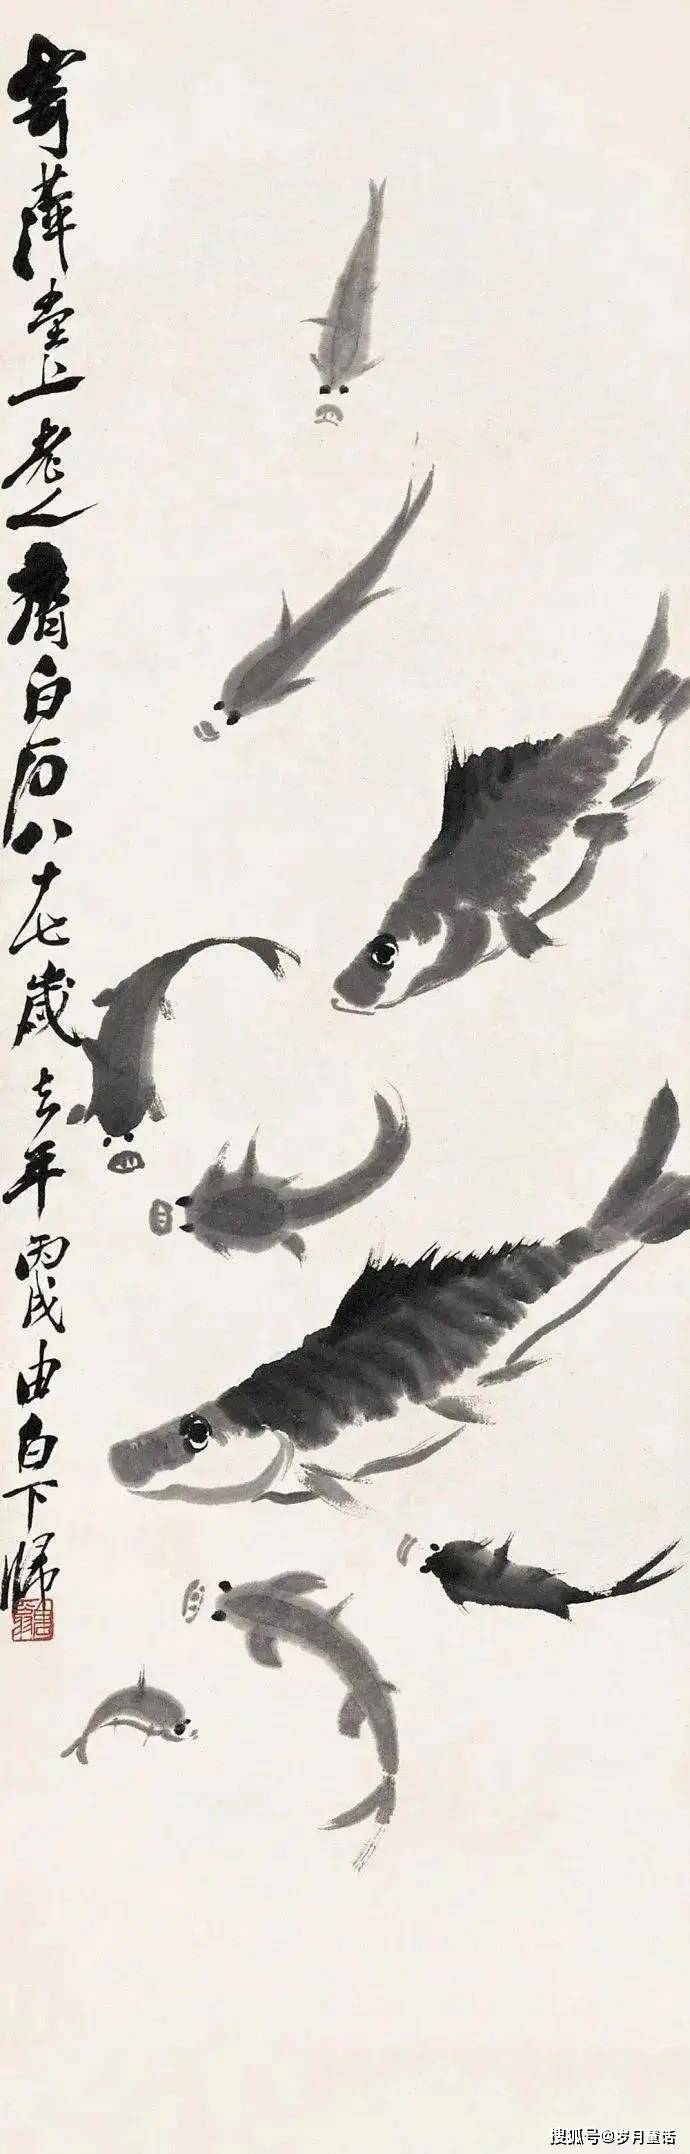 寄萍堂上老人齊白石八十七歲去年丙戌由白下歸
搜狐号@岁月童话